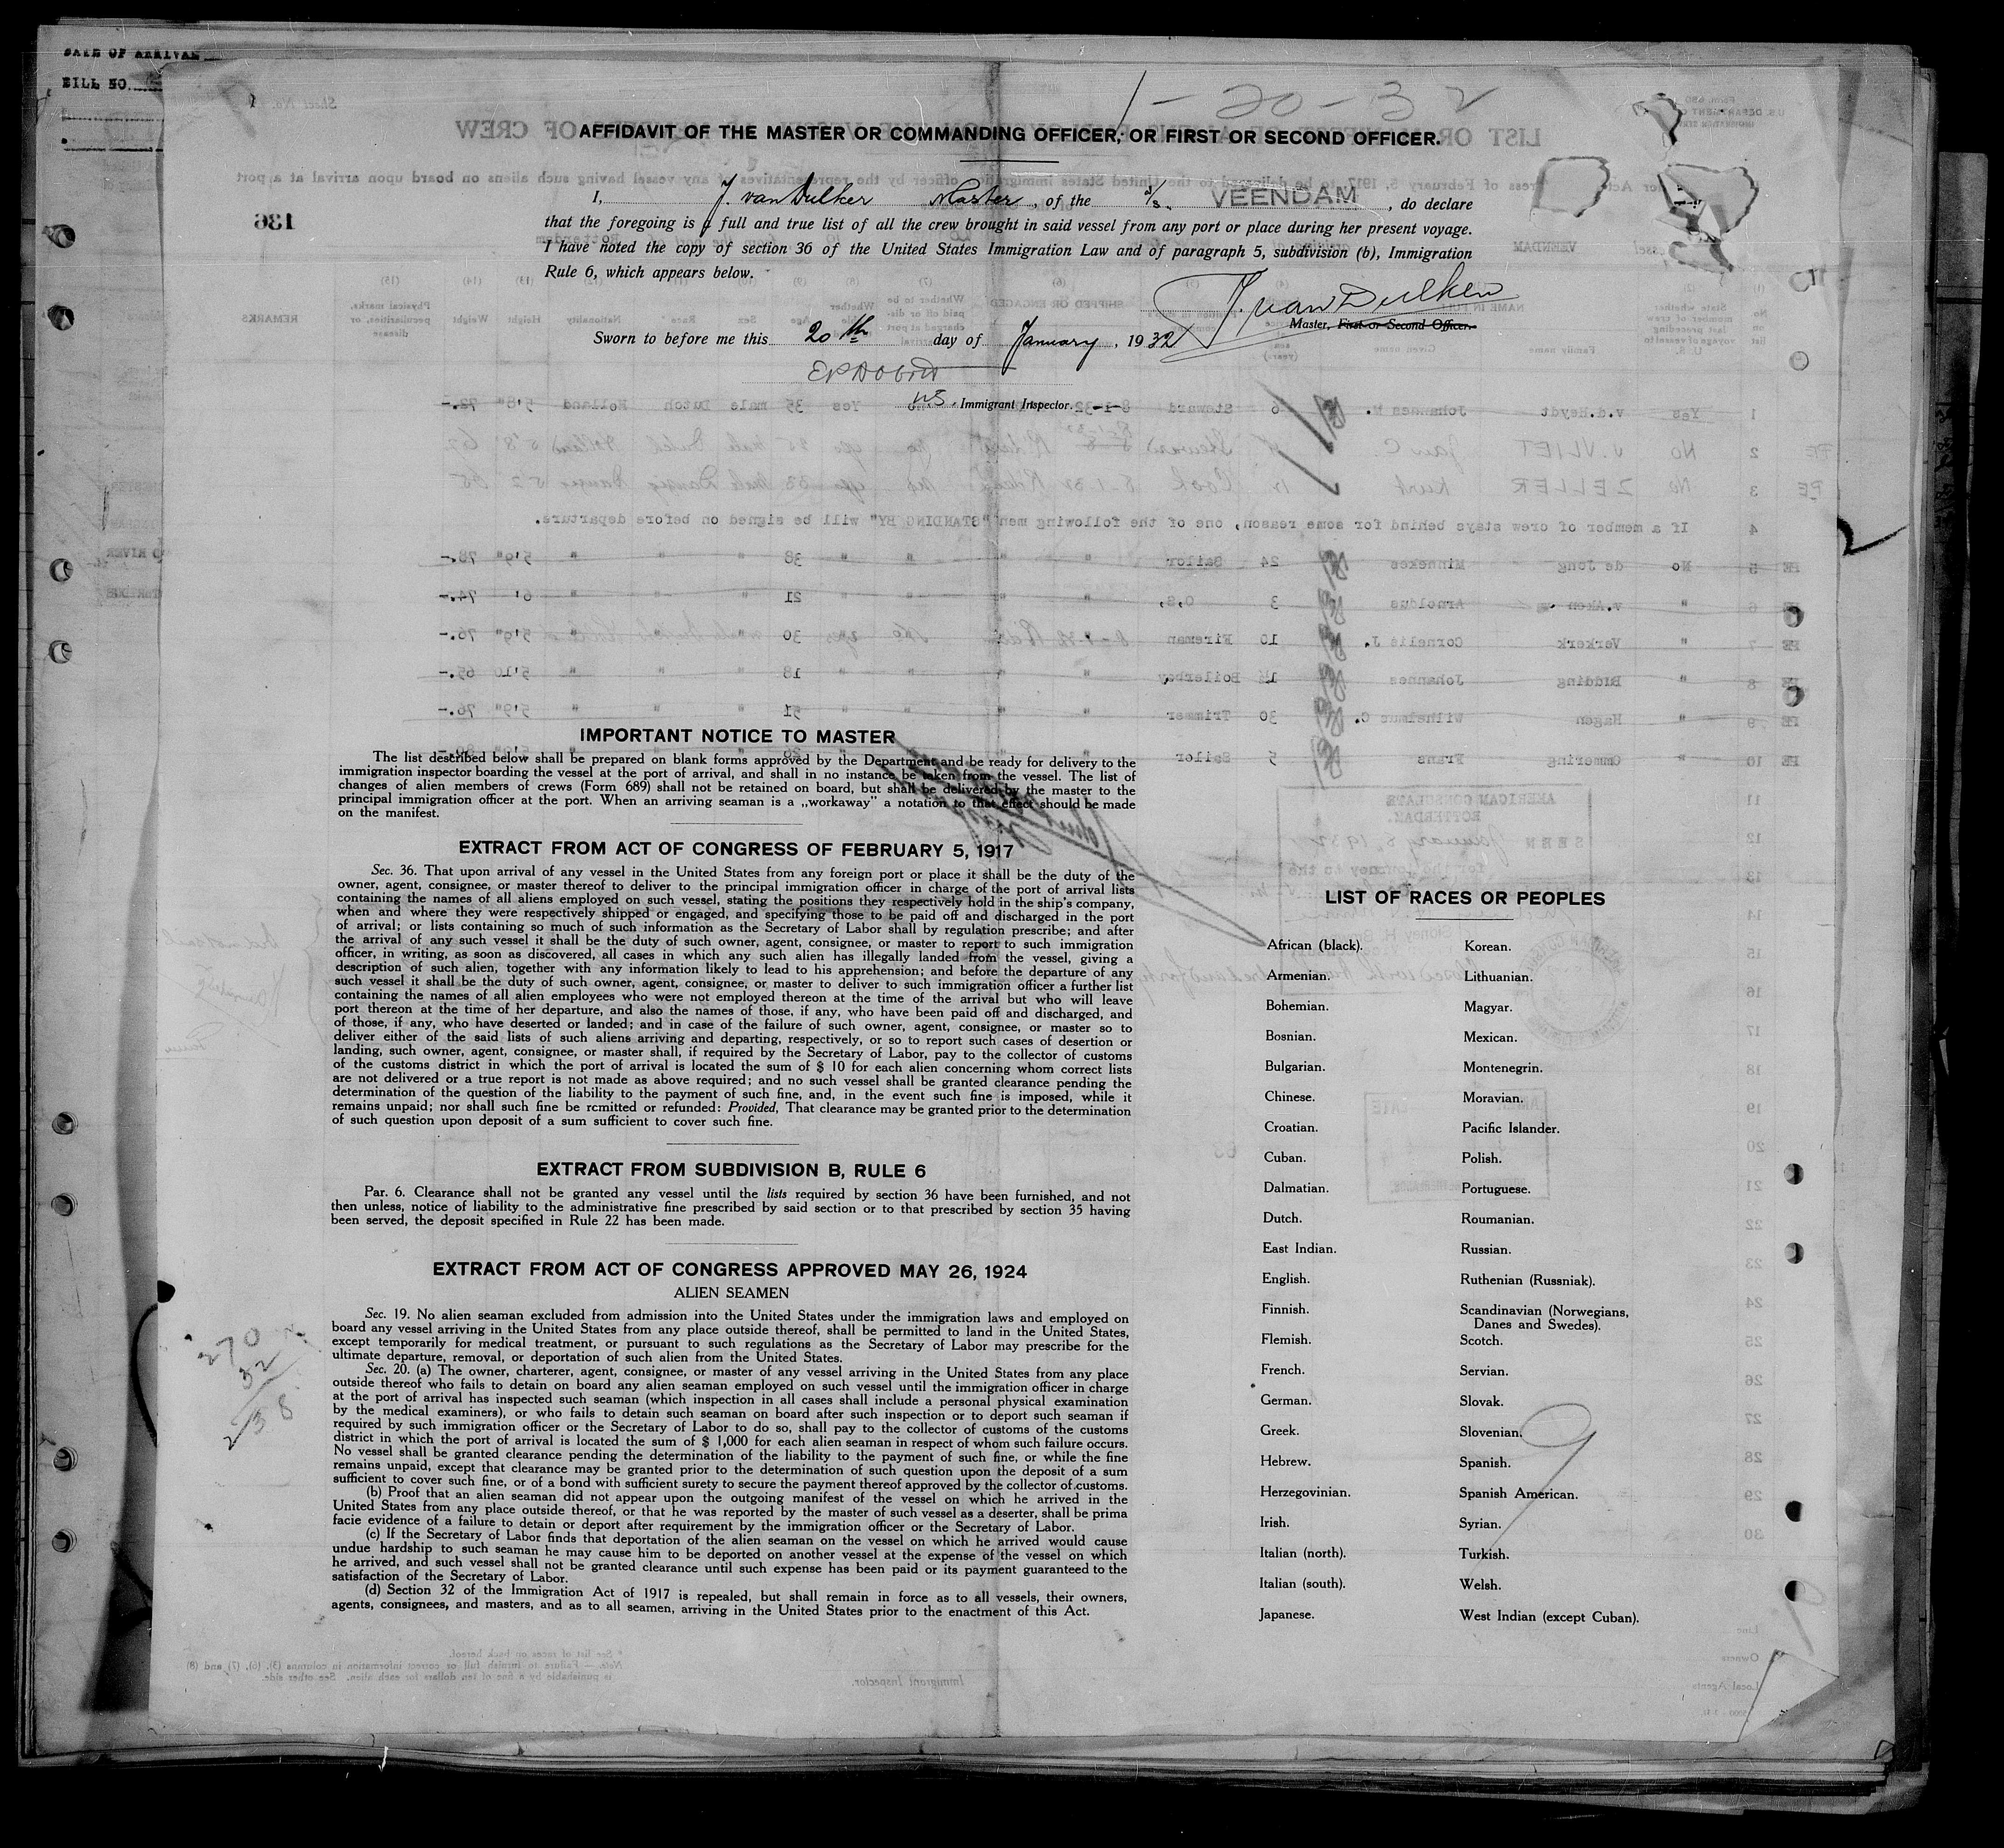 DATE OF ARRIVAL
BILL NO.
1-20-32
AFFIDAVIT OF THE MASTER OR COMMANDING OFFICER, OR FIRST OR SECOND OFFICER.
I, J. van Dulken Master, of the s/s. VEENDAM, do declare
that the foregoing is a full and true list of all the crew brought in said vessel from any port or place during her present voyage.
I have noted the copy of section 36 of the United States Immigration Law and of paragraph 5, subdivision (b), Immigration
Rule 6, which appears below.
J. van Dulken
Master, First or Second Officer.
Sworn to before me this 20th day of January, 1932
U.S. Immigrant Inspector.
136
IMPORTANT NOTICE TO MASTER
The list described below shall be prepared on blank forms approved by the Department and be ready for delivery to the
immigration inspector boarding the vessel at the port of arrival, and shall in no instance be taken from the vessel. The list of
changes of alien members of crews (Form 689) shall not be retained on board, but shall be delivered by the master to the
principal immigration officer at the port. When an arriving seaman is a „workaway" a notation to that effect should be made
on the manifest.
EXTRACT FROM ACT OF CONGRESS OF FEBRUARY 5, 1917
Sec. 36. That upon arrival of any vessel in the United States from any foreign port or place it shall be the duty of the
owner, agent, consignee, or master thereof to deliver to the principal immigration officer in charge of the port of arrival lists
containing the names of all aliens employed on such vessel, stating the positions they respectively hold in the ship's company,
when and where they were respectively shipped or engaged, and specifying those to be paid off and discharged in the port
of arrival; or lists containing so much of such information as the Secretary of Labor shall by regulation prescribe; and after
the arrival of any such vessel it shall be the duty of such owner, agent, consignee, or master to report to such immigration
officer, in writing, as soon as discovered, all cases in which any such alien has illegally landed from the vessel, giving a
description of such alien, together with any information likely to lead to his apprehension; and before the departure of any
such vessel it shall be the duty of such owner, agent, consignee, or master to deliver to such immigration officer a further list
containing the names of all alien employees who were not employed thereon at the time of the arrival but who will leave
port thereon at the time of her departure, and also the names of those, if any, who have been paid off and discharged, and
of those, if any, who have deserted or landed; and in case of the failure of such owner, agent, consignee, or master so to
deliver either of the said lists of such aliens arriving and departing, respectively, or so to report such cases of desertion or
landing, such owner, agent, consignee, or master shall, if required by the Secretary of Labor, pay to the collector of customs
of the customs district in which the port of arrival is located the sum of $ 10 for each alien concerning whom correct lists
are not delivered or a true report is not made as above required; and no such vessel shall be granted clearance pending the
determination of the question of the liability to the payment of such fine, and, in the event such fine is imposed, while it
remains unpaid; nor shall such fine be rcmitted or refunded: Provided, That clearance may be granted prior to the determination
of such question upon deposit of a sum sufficient to cover such fine.
EXTRACT FROM SUBDIVISION B, RULE 6
Par. 6. Clearance shall not be granted any vessel until the lists required by section 36 have been furnished, and not
then unless, notice of liability to the administrative fine prescribed by said section or to that prescribed by section 35 having
been served, the deposit specified in Rule 22 has been made.
EXTRACT FROM ACT OF CONGRESS APPROVED MAY 26, 1924
ALIEN SEAMEN
Sec. 19. No alien seaman excluded from admission into the United States under the immigration laws and employed on
board any vessel arriving in the United States from any place outside thereof, shall be permitted to land in the United States,
except temporarily for medical treatment, or pursuant to such regulations as the Secretary of Labor may prescribe for the
ultimate departure, removal, or deportation of such alien from the United States.
Sec. 20. (a) The owner, charterer, agent, consignee, or master of any vessel arriving in the United States from any place
outside thereof who fails to detain on board any alien seaman employed on such vessel until the immigration officer in charge
at the port of arrival has inspected such seaman (which inspection in all cases shall include a personal physical examination
by the medical examiners), or who fails to detain such seaman on board after such inspection or to deport such seaman if
required by such immigration officer or the Secretary of Labor to do so, shall pay to the collector of customs of the customs
district in which the port of arrival is located the sum of $ 1,000 for each alien seaman in respect of whom such failure occurs.
No vessel shall be granted clearance pending the determination of the liability to the payment of such fine, or while the fine
remains unpaid, except that clearance may be granted prior to the determination of such question upon the deposit of a sum
sufficient to cover such fine, or of a bond with sufficient surety to secure the payment thereof approved by the collector of customs.
(b) Proof that an alien seaman did not appear upon the outgoing manifest of the vessel on which he arrived in the
United States from any place outside thereof, or that he was reported by the master of such vessel as a deserter, shall be prima
facie evidence of a failure to detain or deport after requirement by the immigration officer or the Secretary of Labor.
(c) If the Secretary of Labor finds that deportation of the alien seaman on the vessel on which he arrived would cause
undue hardship to such seaman he may cause him to be deported on another vessel at the expense of the vessel on which
he arrived, and such vessel shall not be granted clearance until such expense has been paid or its payment guaranteed to the
satisfaction of the Secretary of Labor.
(d) Section 32 of the Immigration Act of 1917 is repealed, but shall remain in force as to all vessels, their owners,
agents, consignees, and masters, and as to all seamen, arriving in the United States prior to the enactment of this Act.
270
32
238
LIST OF RACES OR PEOPLES
African (black).
Armenian.
Bohemian.
Bosnian.
Bulgarian.
Chinese.
Croatian.
Cuban.
Dalmatian.
Dutch.
East Indian.
English.
Finnish.
Flemish.
French.
German.
Greek.
Hebrew.
Herzegovinian.
Irish.
Italian (north).
Italian (south).
Japanese.
Korean.
Lithuanian.
Magyar.
Mexican.
Montenegrin.
Moravian.
Pacific Islander.
Polish.
Portuguese.
Roumanian.
Russian.
Ruthenian (Russniak).
Scandinavian (Norwegians,
Danes and Swedes).
Scotch.
Servian.
Slovak.
Slovenian.
Spanish.
Spanish American.
Syrian.
Turkish.
Welsh.
West Indian (except Cuban).
9